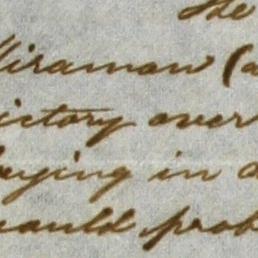 the
Miramon (a
ictory over
laying in a
would prob